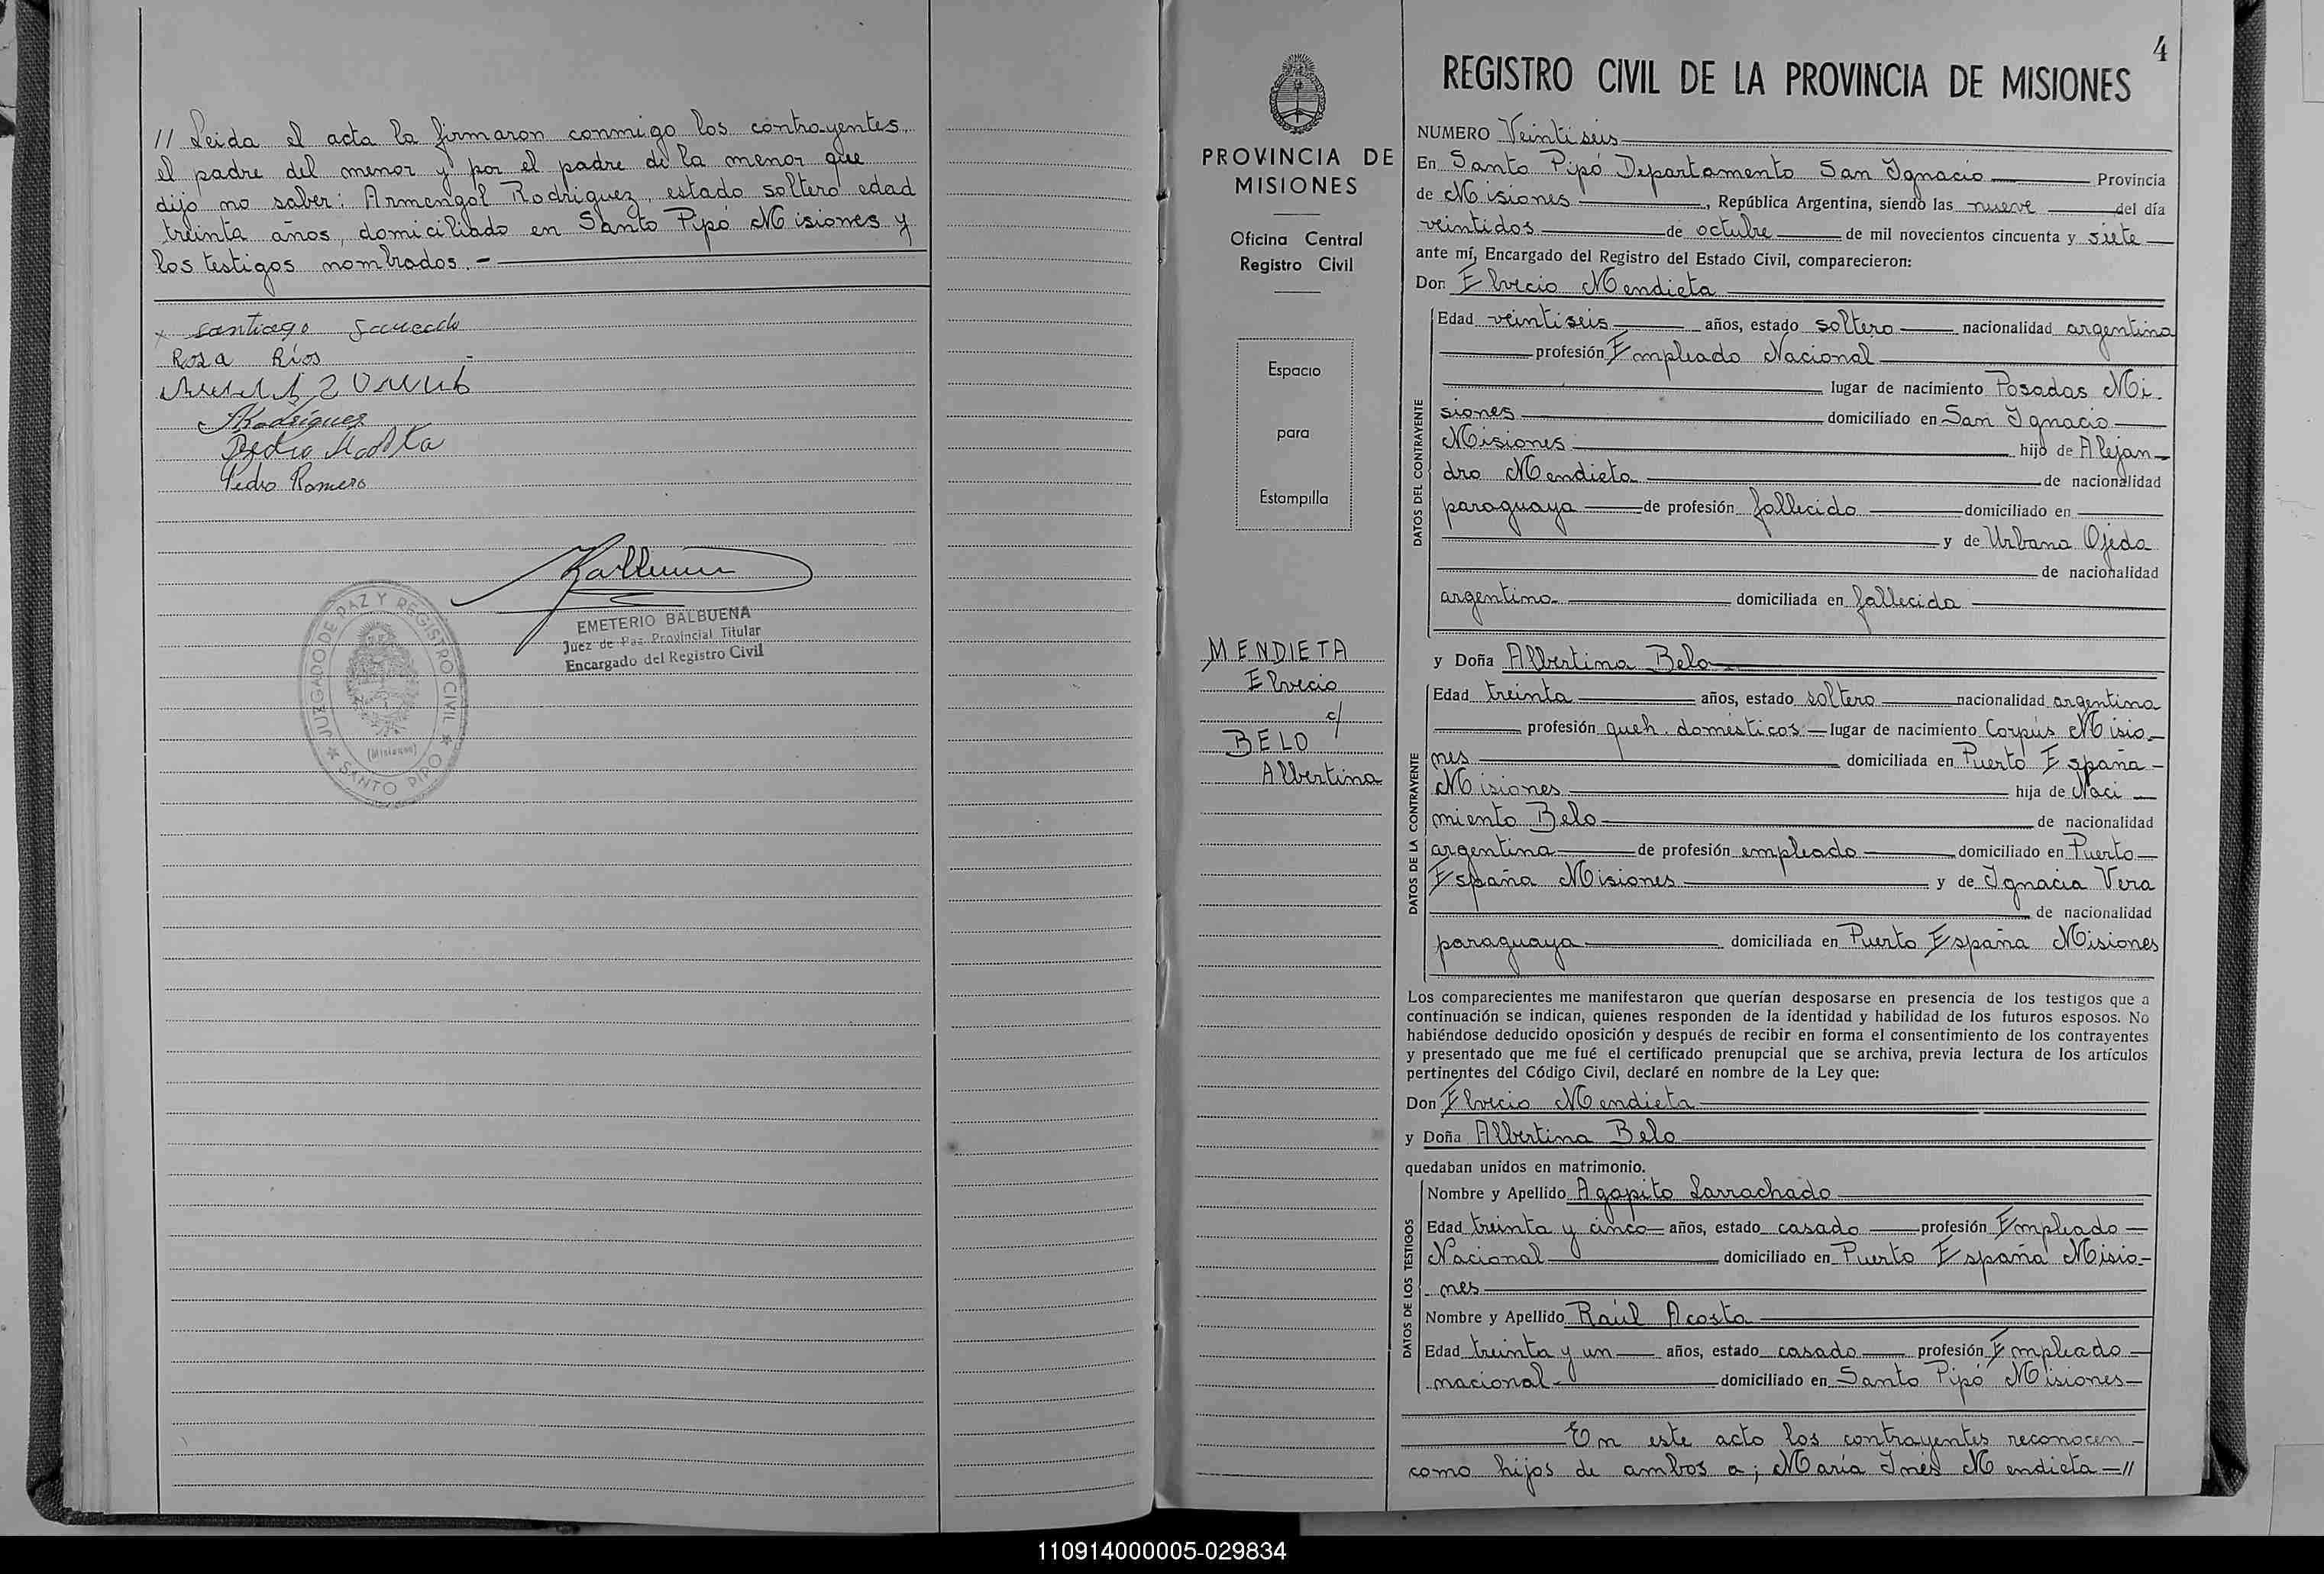 // Leida el acta la firmaron conmigo los contrayentes,
el padre del menor y por el padre de la menor que
dijo no saber: Armengol Rodriguez, estado soltero edad
treinta años, domiciliado en Santo Pipó Misiones y
los testigos nombrados.-
Santiago
Rosa Ríos
ARodríguez
Pedro Acosta
Pedro Romero
EMETERIO BALBUENA
Juez de Paz Provincial Titular
Encargado del Registro Civil
JUZGADO DE PAZ Y REGISTRO CIVIL
(Misiones)
SANTO PIPO
PROVINCIA DE
MISIONES
Oficina Central
Registro Civil
Espacio
para
Estampilla
MENDIETA
Elvecio
c/
BELO
Albertina
4
REGISTRO CIVIL DE LA PROVINCIA DE MISIONES
NUMERO Veintiseis
En Santo Pipó Departamento San Ignacio Provincia
de Misiones, República Argentina, siendo las nueve del día
veintidos de octubre de mil novecientos cincuenta y siete
ante mí, Encargado del Registro del Estado Civil, comparecieron:
Don Elvecio Mendieta
DATOS DEL CONTRAYENTE
Edad veintiseis años, estado soltero nacionalidad argentina
profesión Empleado Nacional
lugar de nacimiento Posadas Mi-
siones domiciliado en San Ignacio
Misiones hijo de Alejan-
dro Mendieta de nacionalidad
paraguaya de profesión fallecido domiciliado en
y de Urbana Ojeda
de nacionalidad
argentina domiciliada en fallecida
y Doña Albertina Belo
DATOS DE LA CONTRAYENTE
Edad treinta años, estado soltera nacionalidad argentina
profesión queh. domésticos lugar de nacimiento Corpus Misio-
nes domiciliada en Puerto España
Misiones hija de Naci
miento Belo de nacionalidad
argentina de profesión empleado domiciliado en Puerto
España Misiones y de Ignacia Vera
de nacionalidad
paraguaya domiciliada en Puerto España Misiones
Los comparecientes me manifestaron que querían desposarse en presencia de los testigos que a
continuación se indican, quienes responden de la identidad y habilidad de los futuros esposos. No
habiéndose deducido oposición y después de recibir en forma el consentimiento de los contrayentes
y presentado que me fué el certificado prenupcial que se archiva, previa lectura de los artículos
pertinentes del Código Civil, declaré en nombre de la Ley que:
Don Elvecio Mendieta
y Doña Albertina Belo
quedaban unidos en matrimonio.
DATOS DE LOS TESTIGOS
Nombre y Apellido Agapito Larrachado
Edad treinta y cinco años, estado casado profesión Empleado
Nacional domiciliado en Puerto España Misio-
nes
Nombre y Apellido Raúl Acosta
Edad treinta y un años, estado casado profesión Empleado
nacional domiciliado en Santo Pipó Misiones
En este acto los contrayentes reconocen
como hijos de ambos a; María Inés Mendieta //
110914000005-029834